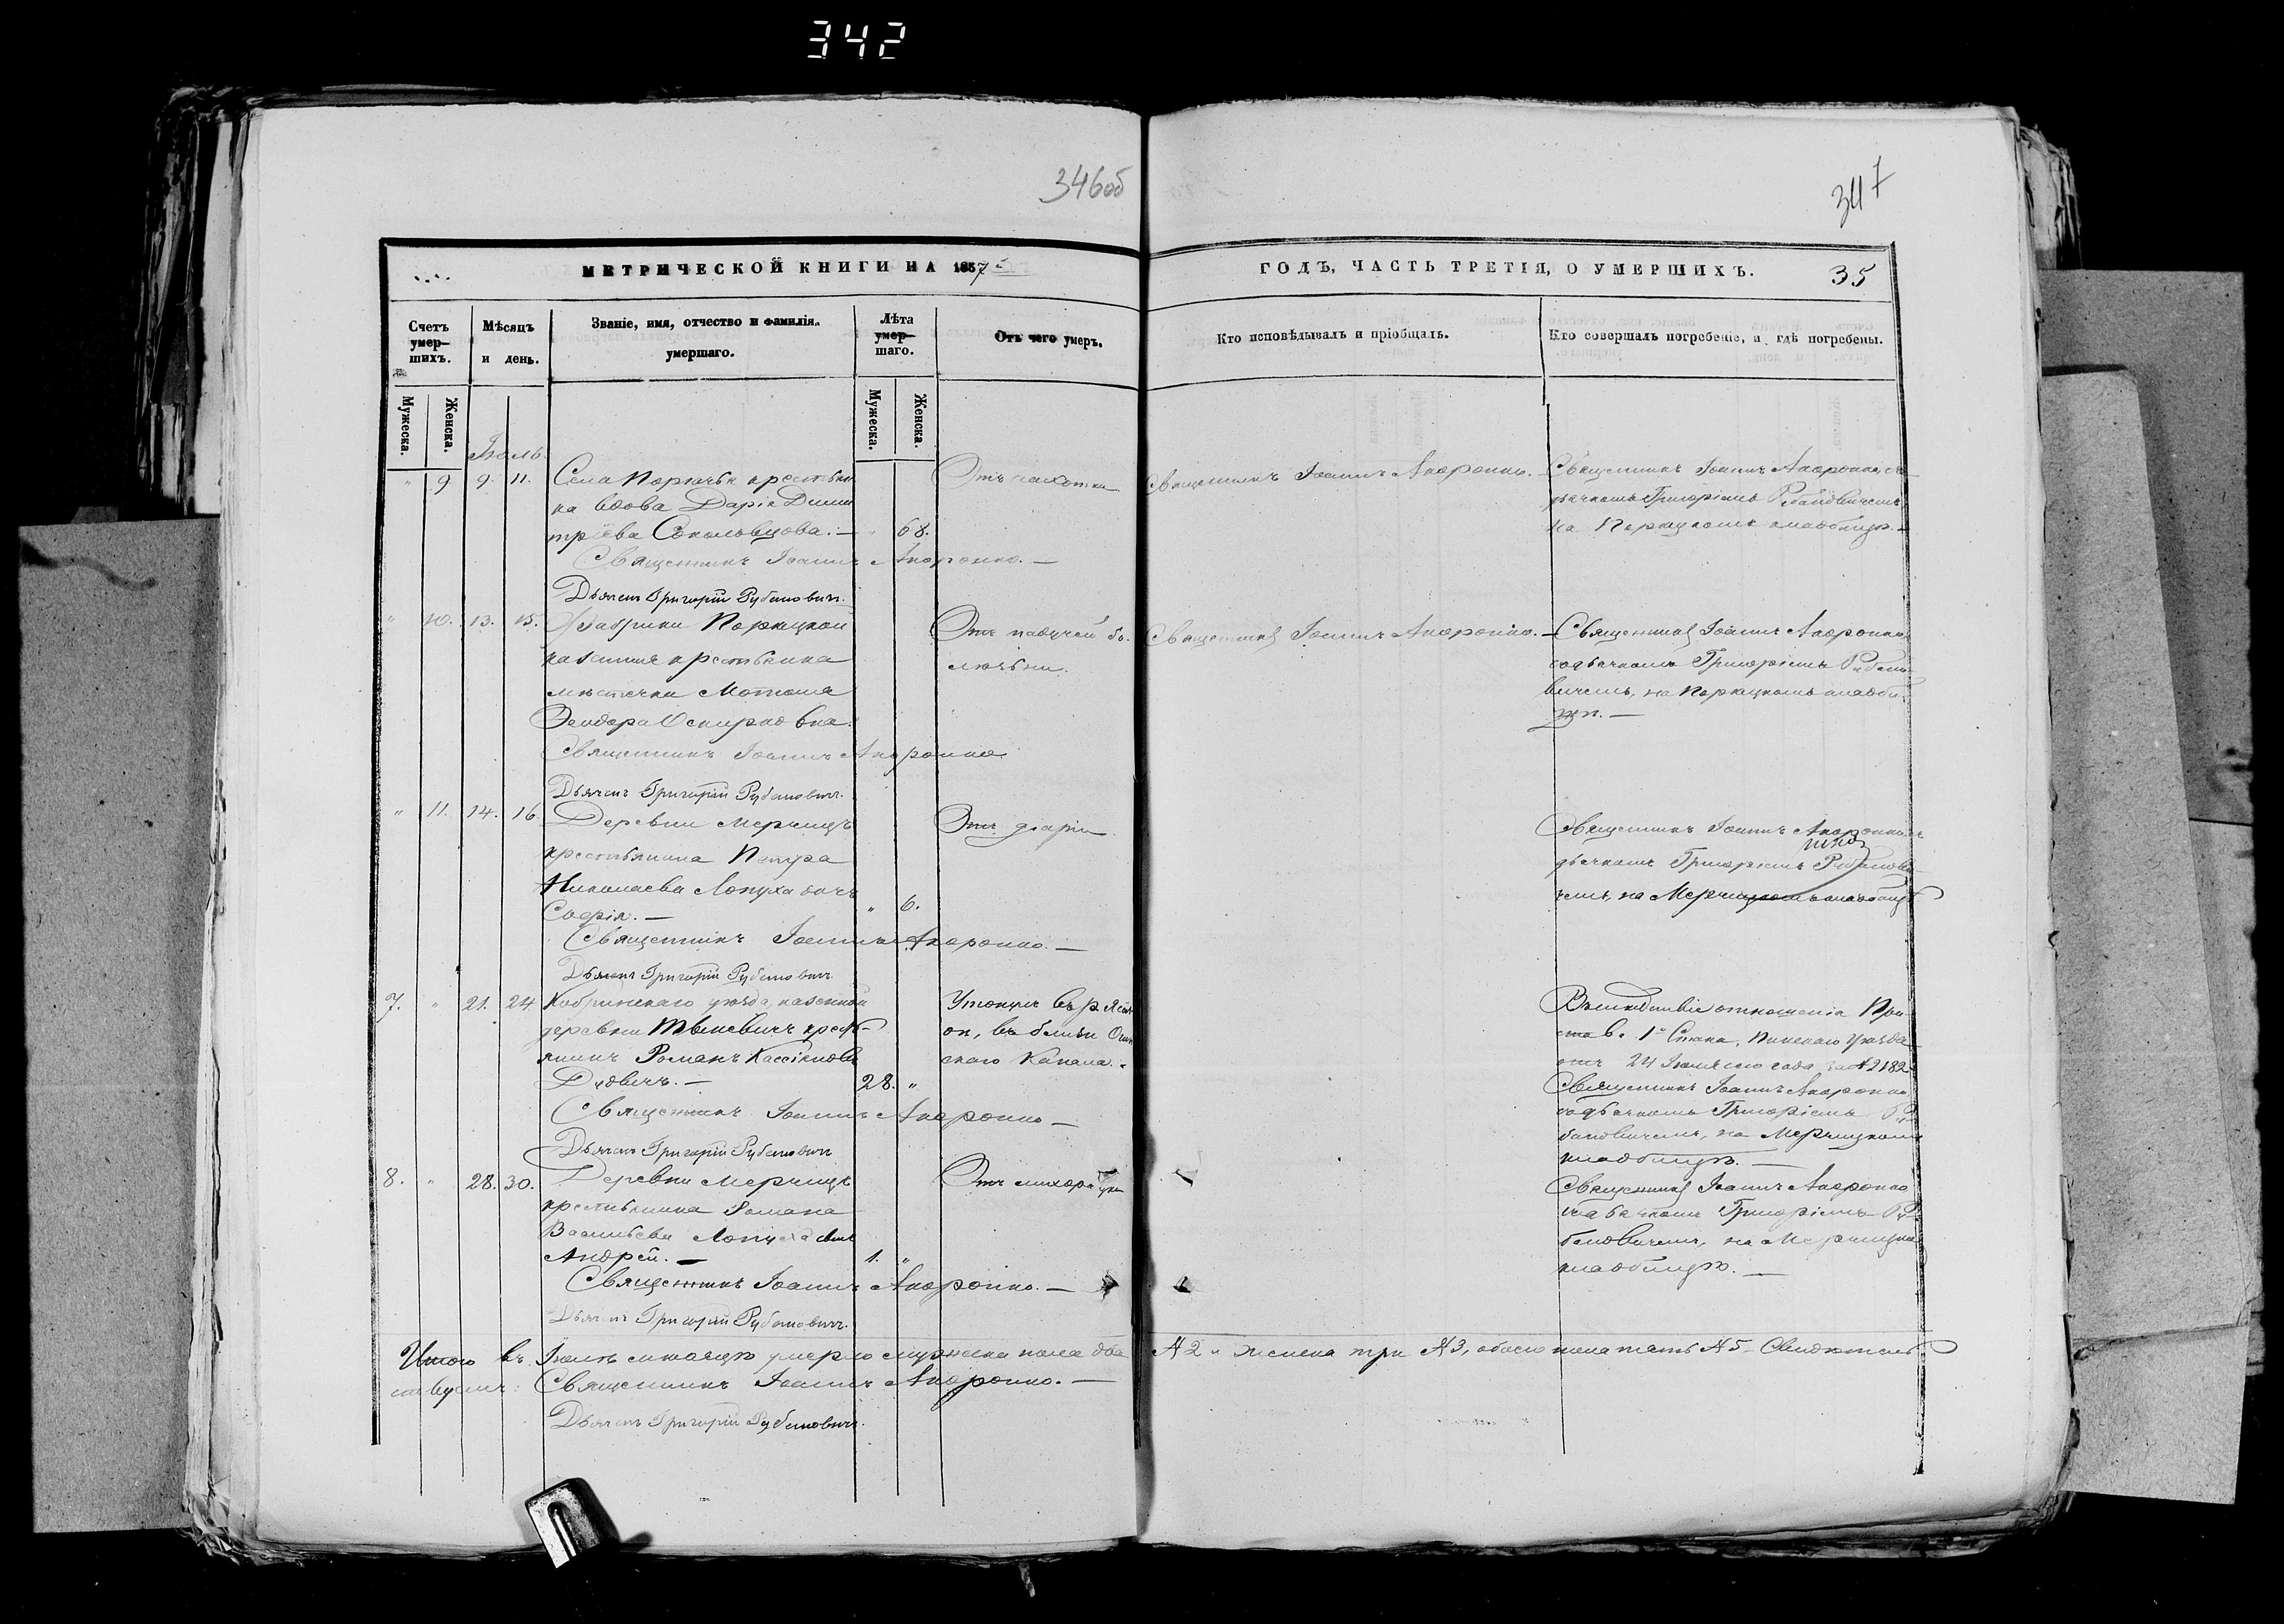 342
346об
347
МЕТРИЧЕСКОЙ КНИГИ НА 1857
ГОДЪ, ЧАСТЬ ТРЕТІЯ, О УМЕРШИХЪ.
35
Счетъ умер-шихъ.
Мѣсяцъ и день.
Званіе, имя, отчество и фамилія умершаго.
Лѣта умер-шаго.
Отъ чего умеръ.
Кто исповѣдывалъ и пріобщалъ.
Кто совершалъ погребеніе, и гдѣ погребены.
Мужеска.
Женска.
Мужеска.
Женска.
Іюль.
" 9 9. 11.
Села Порѣчья крестьян
ка вдова Дарія Дими
тріева
" 68.
Священникъ Іоаннъ
Дьячекъ Григорій Рубановичъ.
Отъ чахотки
Священникъ Іоаннъ
Священникъ Іоаннъ
дьячкомъ Григоріемъ Рубановичемъ
на кладбищѣ.
" 10. 13. 15.
Фабрики Порѣцкой
крестьянка
мѣстечка Мотоля
Священникъ Іоаннъ
Дьячекъ Григорій Рубановичъ.
Отъ падучей бо-
лѣзни.
Священникъ Іоаннъ
Священникъ Іоаннъ
дьячкомъ Григоріемъ Рубано
вичемъ, на Порѣцкомъ кладби
щѣ. —
" 11. 14. 16.
Деревни Мерчицъ
крестьянина Петра
Николаева Лопуха дочь
Софія. —
" 6.
Священникъ Іоаннъ
Дьячекъ Григорій Рубановичъ.
Отъ діаріи
Священникъ Іоаннъ
дьячкомъ Григоріемъ Рубанови
чемъ, на Мерчицкомъ кладбищѣ
7. " 21. 24.
Кобринскаго уѣзда казенной
деревни крест-
янинъ Романъ
Дудичъ. —
28. "
Священникъ Іоаннъ
Дьячекъ Григорій Рубановичъ
Утонулъ въ р. Ясѣль
дѣ, въ близи Огин
скаго Канала.
Вслѣдствіе отношенія При-
става 1го Стана, Пинскаго Уѣзда
отъ 24 Іюля сего года за № 2182
Священникъ Іоаннъ
съ дьячкомъ Григоріемъ Ру
бановичемъ, на Мерчицкомъ
кладбищѣ. —
8. " 28. 30.
Деревни Мерчицъ
крестьянина Романа
Васильева Лопуха сынъ
Андрей. —
1. "
Священникъ Іоаннъ
Дьячекъ Григорій Рубановичъ.
Отъ лихорадки
Священникъ Іоаннъ
съ дьячкомъ Григоріемъ Ру
бановичемъ, на Мерчицкомъ
кладбищѣ. —
Итого въ Іюлѣ мѣсяцѣ умерло мужеска пола два № 2 и женска три № 3, обоего пола пять № 5 Свидѣтель
ствуемъ: Священникъ Іоаннъ
Дьячекъ Григорій Рубановичъ.